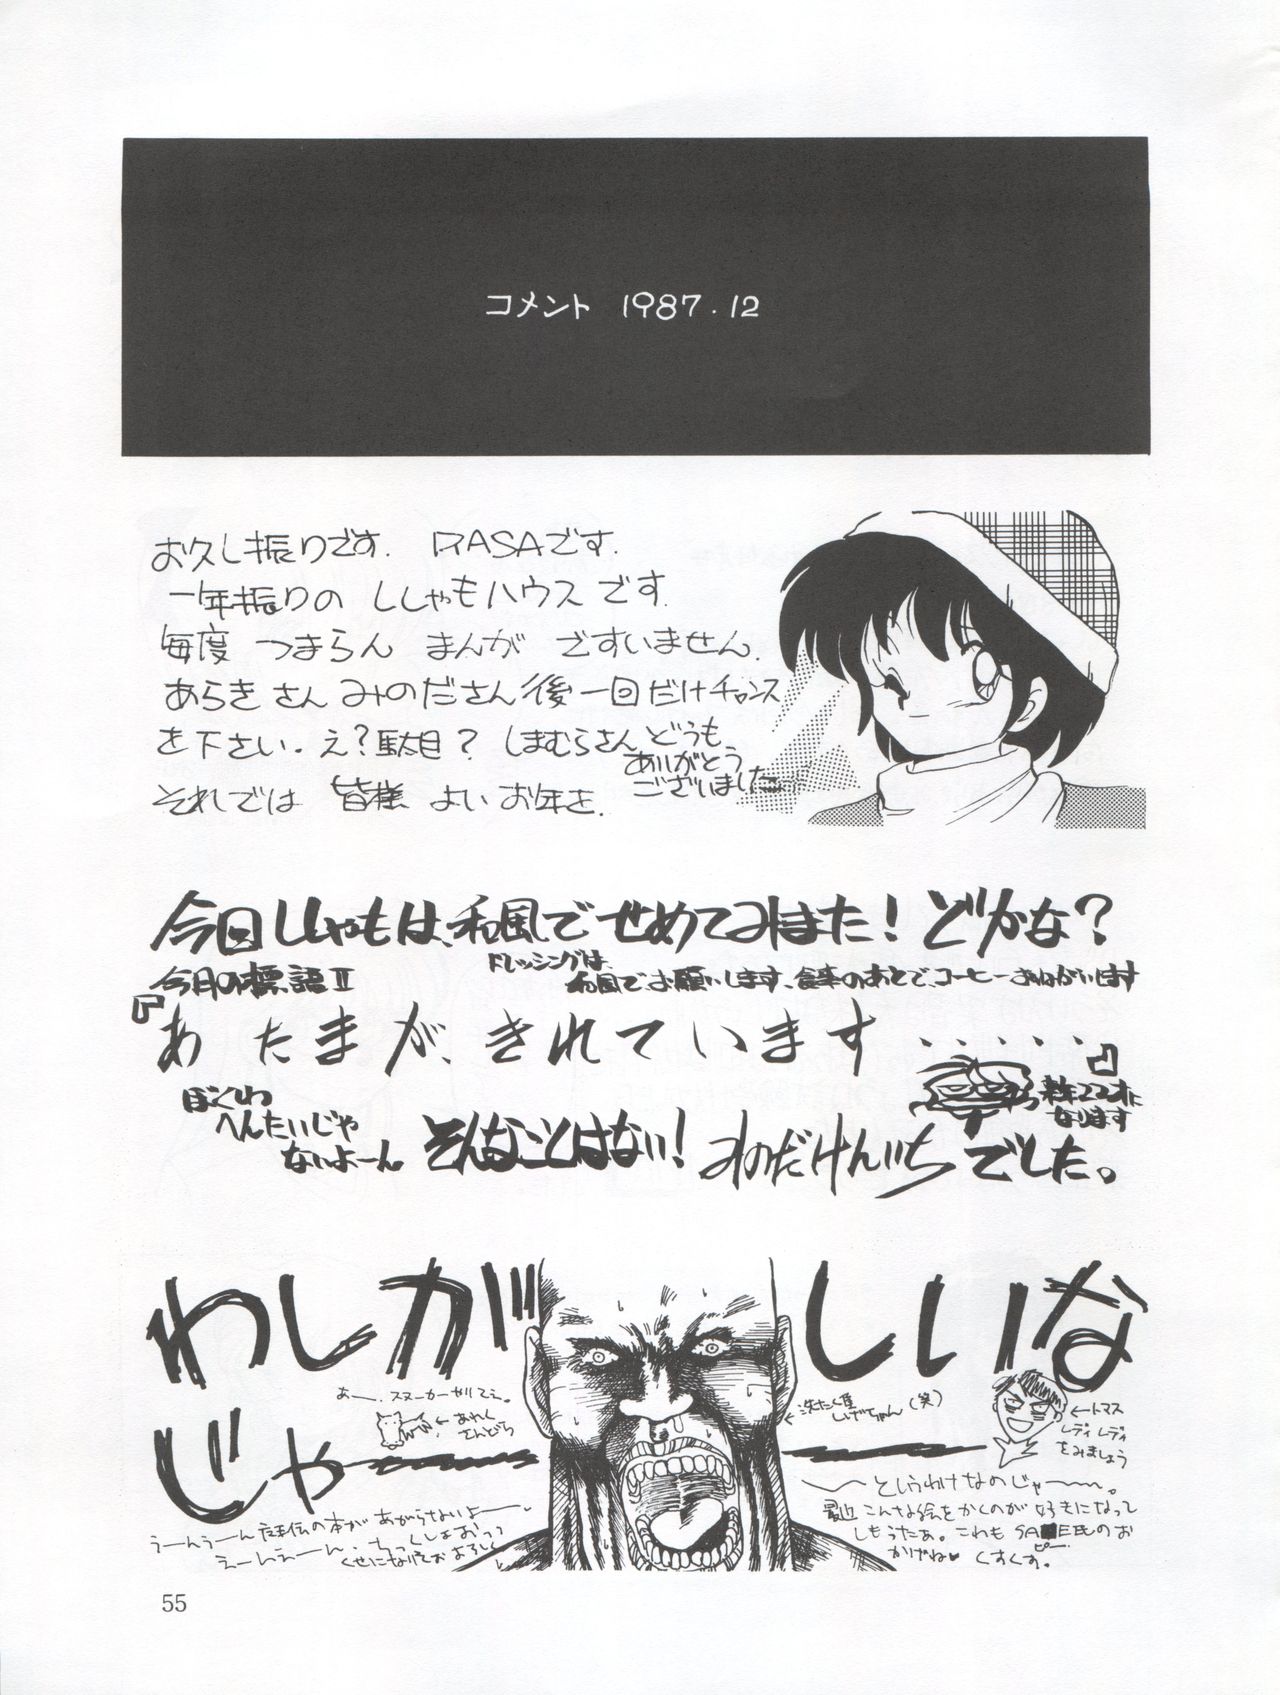 コメント 1987.12
お久し振りです. RASAです.
一年振りの ししゃもハウス です.
毎度 つまらん まんが ですいません.
あらきさん みのださん 後一回だけチャンス
を下さい. え?駄目? しむらさん どうも
ありがとう
ございました
それでは 皆様 よい お年を.
今回ししゃもは、和風でせめてみました! どかな?
今月の標語Ⅱ
ドレッシングは、
和風で、お願いします、食事のあとで、コーヒーおねがいします
『あたまが、きれています ・・・・・・』
ぼくしわ
へんたいじゃ
ないよーん
なります
そんなことはない! みのだけんいちでした。
わしが しいな
じゃ
あー、スヌーカーやりてえ。
←あれく
さんどら
←洗たく屋
しげちゃん(笑)
←トマス
レディレディ
をみましょう
〜というわけなのじゃ〜。
最近こんな絵をかくのが好きになって
しもうたあ。これもSA■E氏のお
ピー
かげね♥ くすくす。
うーんうーん 本があがらないよー
えーんえーん、ちっくしょおっっ
55